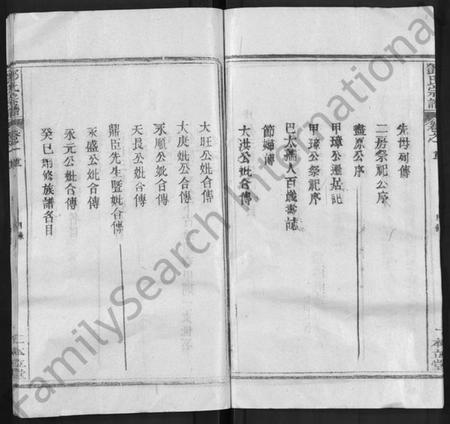 先母列傳
二房祭祀公序
盡原公序
甲璋公遷居記
甲璋公祭祀序
巴太孺人百歲壽誌
節婦傳
大洪公妣合傳
大旺公妣合傳
大庚妣公合傳
永順公妣合傳
天長公妣合傳
鼎臣先生暨妣合傳
永盛公妣合傳
永元公妣合傳
癸巳期修族譜名目
氏宗譜
卷之
FamilySearch International